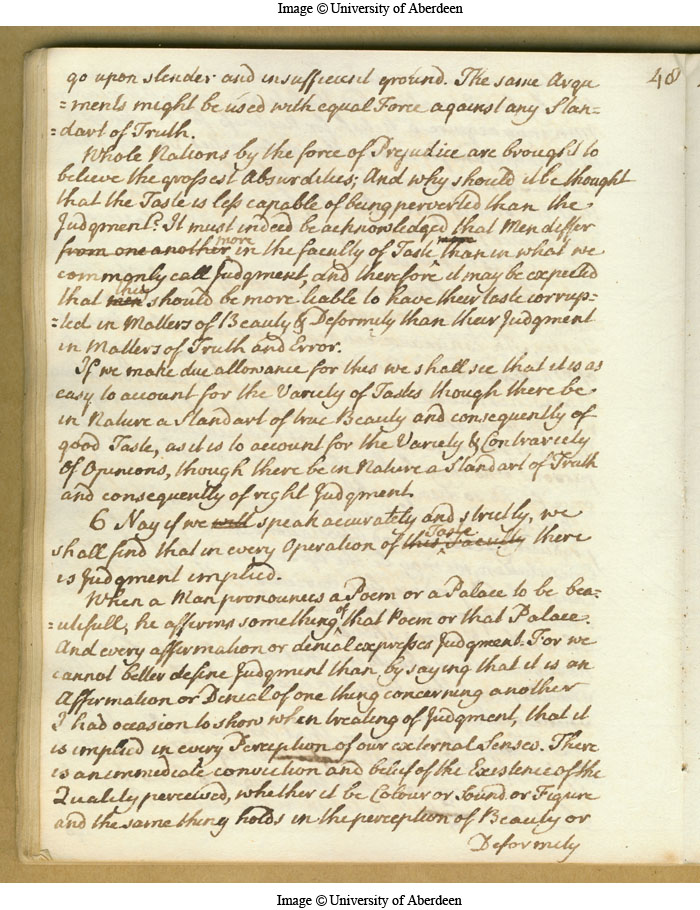 Image © University of Aberdeen
40
go upon slender and insufficient ground. The same Argu
=ments might be used with equal Force against any Stan-
=dart of Truth.
Whole Nations by the force of Prejudice are brought to
believe the grossest Absurdities; And why should it be thought
that the Taste is less capable of being perverted than the
Judgment? It must indeed be acknowledged that Men differ
from one another more in the faculty of Taste than in what we
commonly call Judgment, and therefore it may be expected
that men should be more liable to have their taste corrup-
=ted in Matters of Beauty & Deformity than their Judgment
in Matters of Truth and Error.
If we make due allowance for this we shall see that it is as
easy to account for the Variety of Tastes though there be
in Nature a Standart of true Beauty and consequently of
good Taste, as it is to account for the Variety & Contrariety
of Opinions, though there be in Nature a Standart of Truth
and consequently of right Judgment.
6 Nay if we will speak accurately and strictly, we
shall find that in every Operation of this Faculty Taste there
is Judgment implied.
When a Man pronounces a Poem or a Palace to be bea-
=utifull, he affirms something of that Poem or that Palace.
And every affirmation or denial expresses Judgment. For we
cannot better define Judgment than by saying that it is an
Affirmation or Denial of one thing concerning another
I had occasion to show when treating of Judgment, that it
is implied in every Perception of our external Senses. There
is an immediate conviction and belief of the Existence of the
Quality perceived, whether it be Colour or Sound or Figure
and the same thing holds in the perception of Beauty or
Deformity
Image © University of Aberdeen